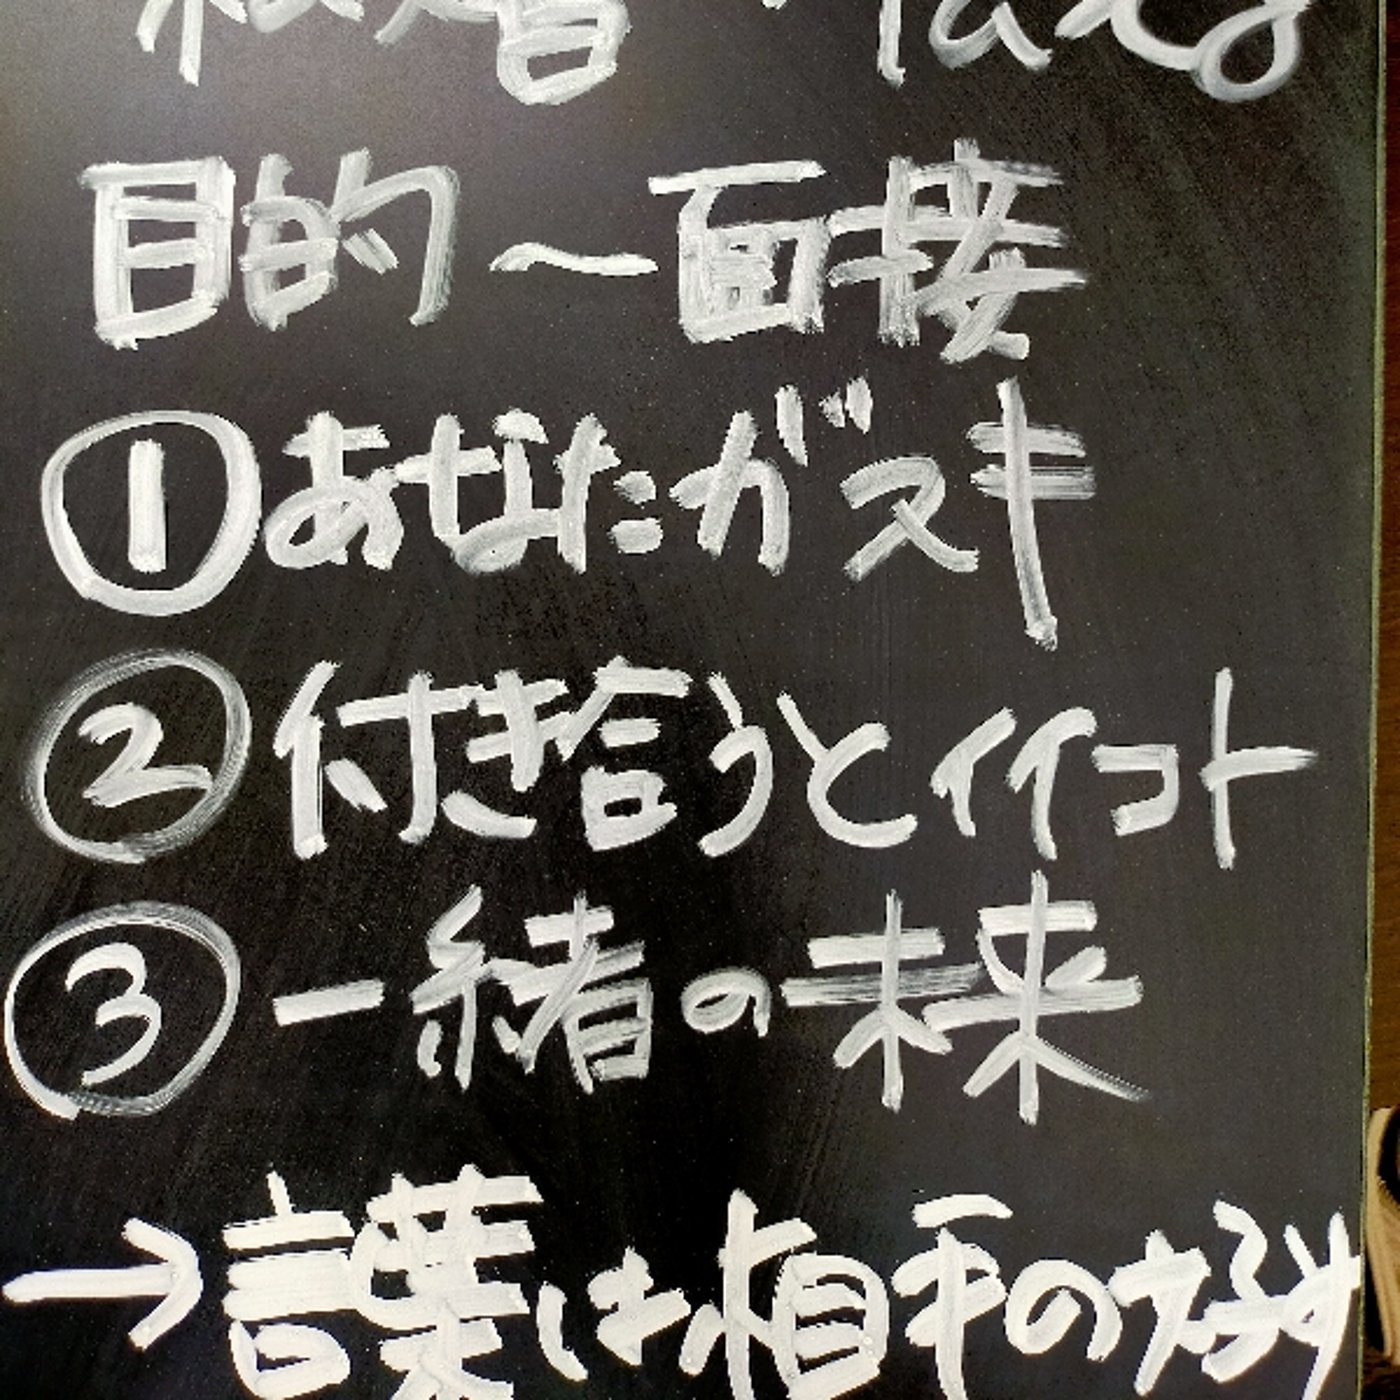 目的〜面接
①あなたガスキ
②付き合うとイイコト
③一緒の未来
→言葉は相手のため